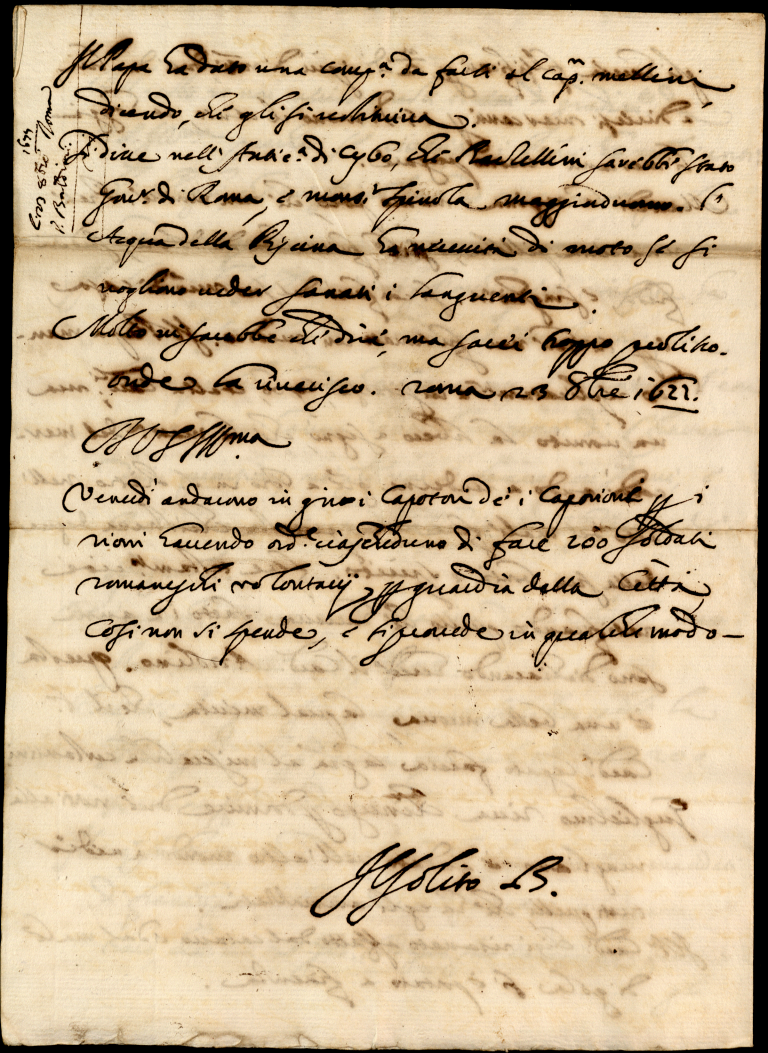 Il Papa ha dato una comp.a da fanti al cap.n mellini
dicendo, che gli si
Si dice nell' Antic.a di Cybo, che Rastellini sarebbe stato
Gov.r di Roma, e mons.r Spinola maggiorduomo. L'
Acqua della Piscina ha necessità di moto se si
vogliono veder sanati i languenti.
Molto vi sarebbe che dire, ma sarei troppo prolisso.
onde la riverisco. roma 23 8bre 1622.
VSIllma
Venerdì andarono in giro i Capotori de' i Caporioni pp i
rioni havendo ord.e ciascheduno di fare 200 soldati
romaneschi volontarij pp guardia della Città,
Cosi non si spende, e si provede in qualche modo –
Il solito B.
1644
23 8bre Roma
P. Baldini